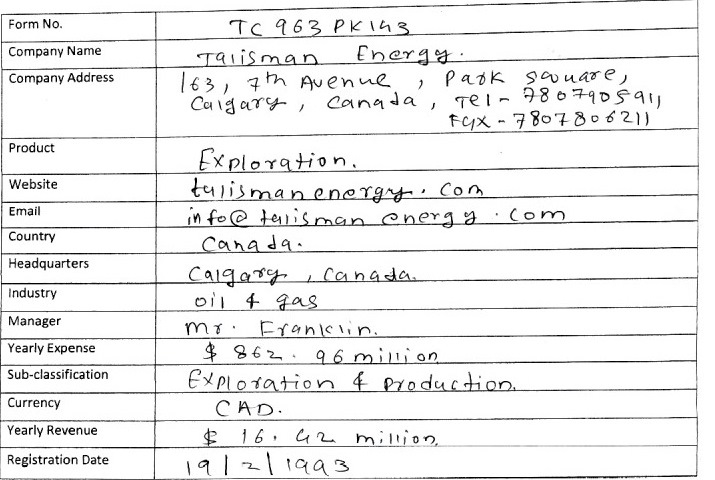 Form No. TC 963 PK143
Company Name Talisman Energy.
Company Address 163, 7th Avenue, Park square,
Calgary, Canada, Tel - 7807905911
Fax - 7807806211
Product Exploration.
Website talismanenergy.com
Email info@talismanenergy.com
Country Canada.
Headquarters Calgary, Canada.
Industry oil & gas
Manager Mr. Franklin.
Yearly Expense $ 862.96 million
Sub-classification Exploration & Production.
Currency CAD.
Yearly Revenue $ 16.42 million.
Registration Date 19/2/1993